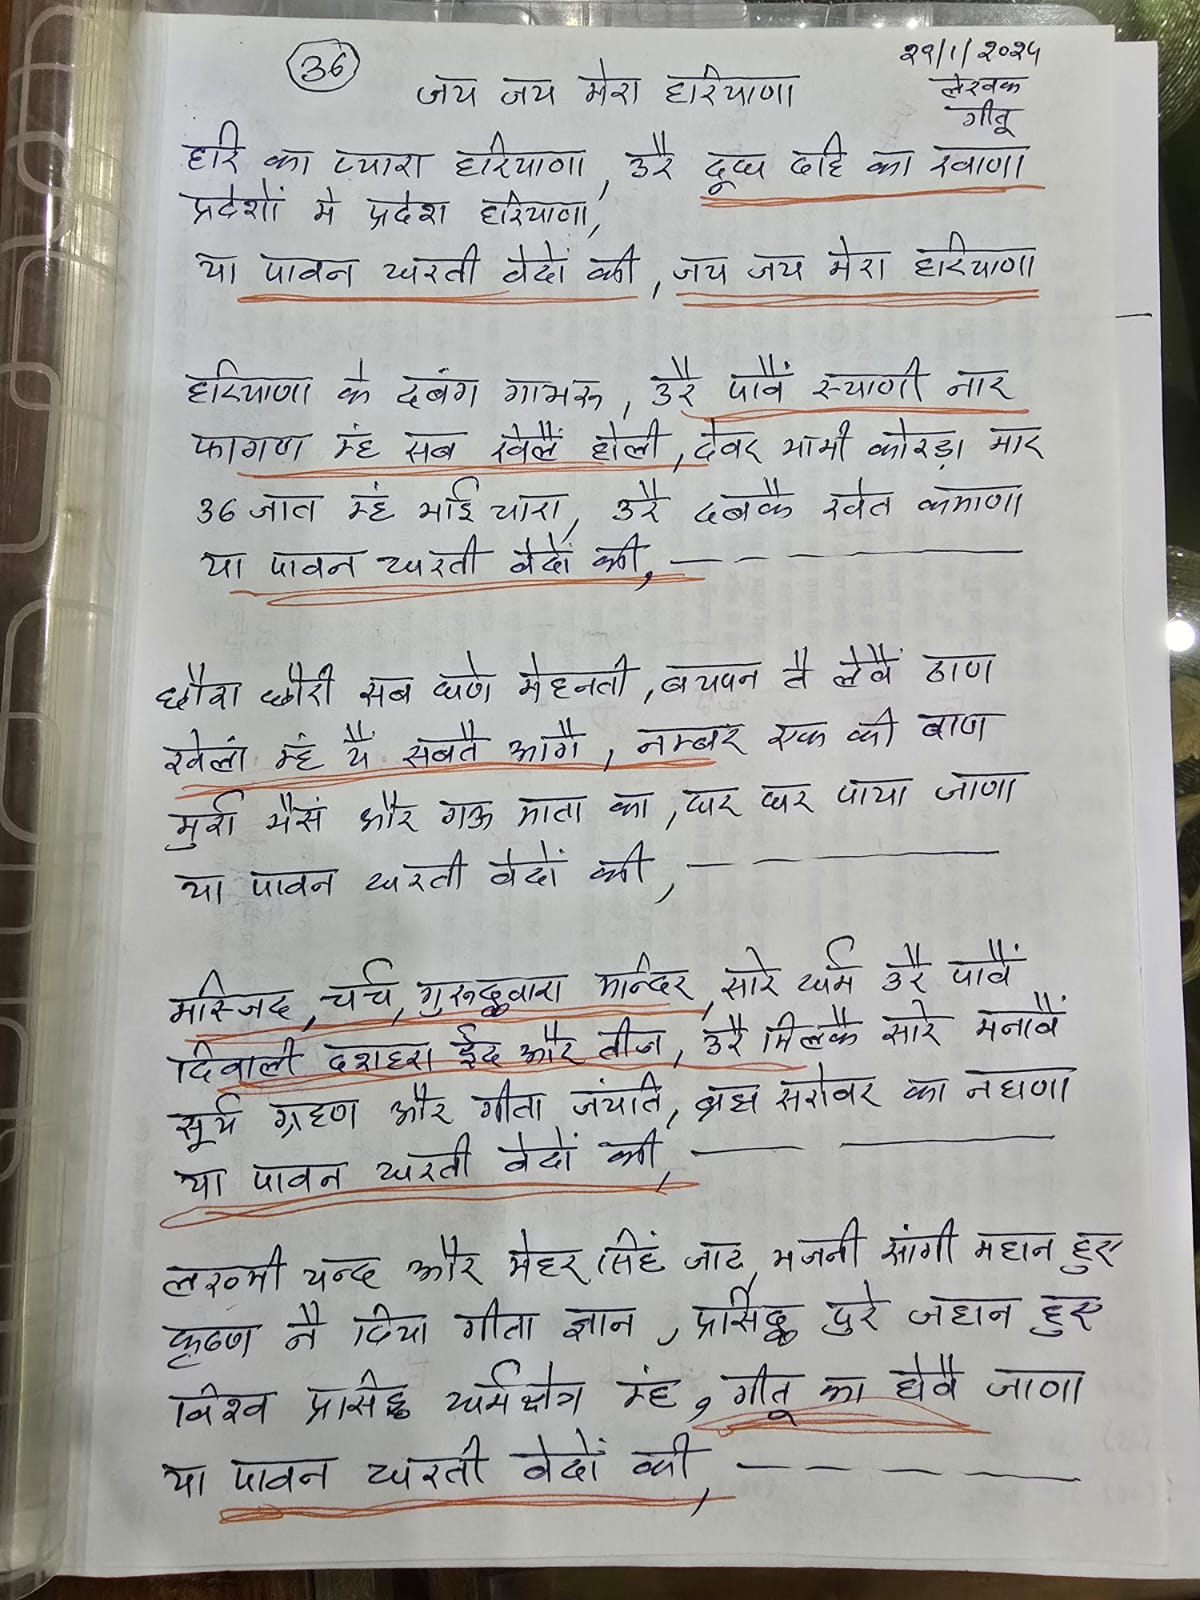 36
२९/१/२०२५
जय जय मेरा हरियाणा
लेखक
गीतू
हरि का प्यारा हरियाणा, उरै दूध दहि का खाणा
प्रदेशों मे प्रदेश हरियाणा,
या पावन धरती वेदों की, जय जय मेरा हरियाणा
हरियाणा के दबंग गाभरू, उरै पावैं स्याणी नार
फागण म्हं सब खेलैं होली, देवर भाभी कोरड़ा मार
36 जात म्हं भाई चारा, उरै दबकै खेत कमाणा
या पावन धरती वेदों की, — — ———
छौरा छौरी सब घणे मेहनती, बचपन तै लेवैं ठाण
खेलां म्हं यैं सबतै आगै, नम्बर एक की बाण
मुर्रा भैसं और गऊ माता का, घर घर पाया जाणा
या पावन धरती वेदों की, — — ———
मस्जिद, चर्च, गुरुद्धवारा मन्दिर, सारे धर्म उरै पावैं
दिवाली दशहरा ईद और तीज, उरै मिलकै सारे मनावैं
सूर्य ग्रहण और गीता जंयति, ब्रह्म सरोवर का नहाणा
या पावन धरती वेदों की, —— ———
लख्मी चन्द और मेहर सिहं जाट, भजनी सांगी महान हुए
कृष्ण नै दिया गीता ज्ञान, प्रसिद्ध पुरे जहान हुए
विश्व प्रसिद्ध धर्मक्षेत्र म्हं, गीतू का होवै जाणा
या पावन धरती वेदों की, — — — — —